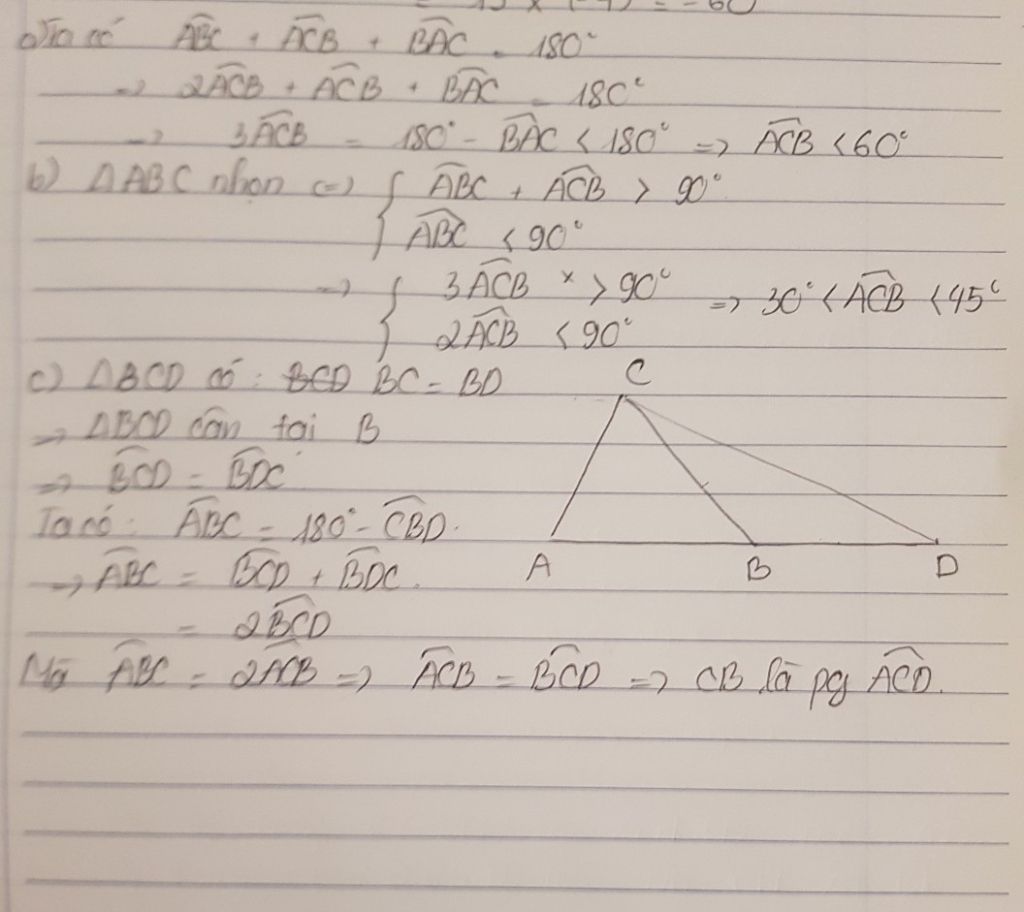 = 15 × (-4) = -60
a) Ta có ABC + ACB + BAC = 180°
=> 2ACB + ACB + BAC = 180°
=> 3ACB = 180° - BAC < 180° => ACB < 60°
b) ΔABC nhọn <=> { ABC + ACB > 90°
ABC < 90°
=> { 3ACB > 90° => 30° < ACB < 45°
2ACB < 90°
c) ΔBCD có : BCD BC = BD
=> ΔBCD cân tại B
=> BCD = BDC
Ta có : ABC = 180° - CBD.
=> ABC = BCD + BDC.
= 2BCD
Mà ABC = 2ACB => ACB = BCD => CB là pg ACD.
C
A B D